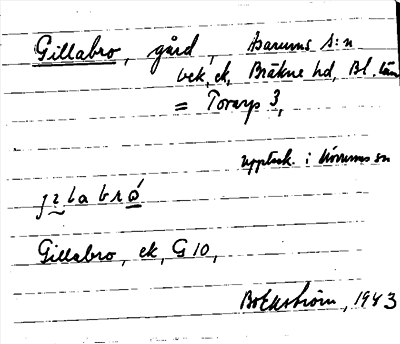 Gillabro, gård, Asarums s:n
bek, ek, Bräkne hd, Bl. län
= Torarp 3,
uppteck. i Mörrums sn
jɪlabró
Gillabro, ek, G 10,
Bo Ekström, 1943